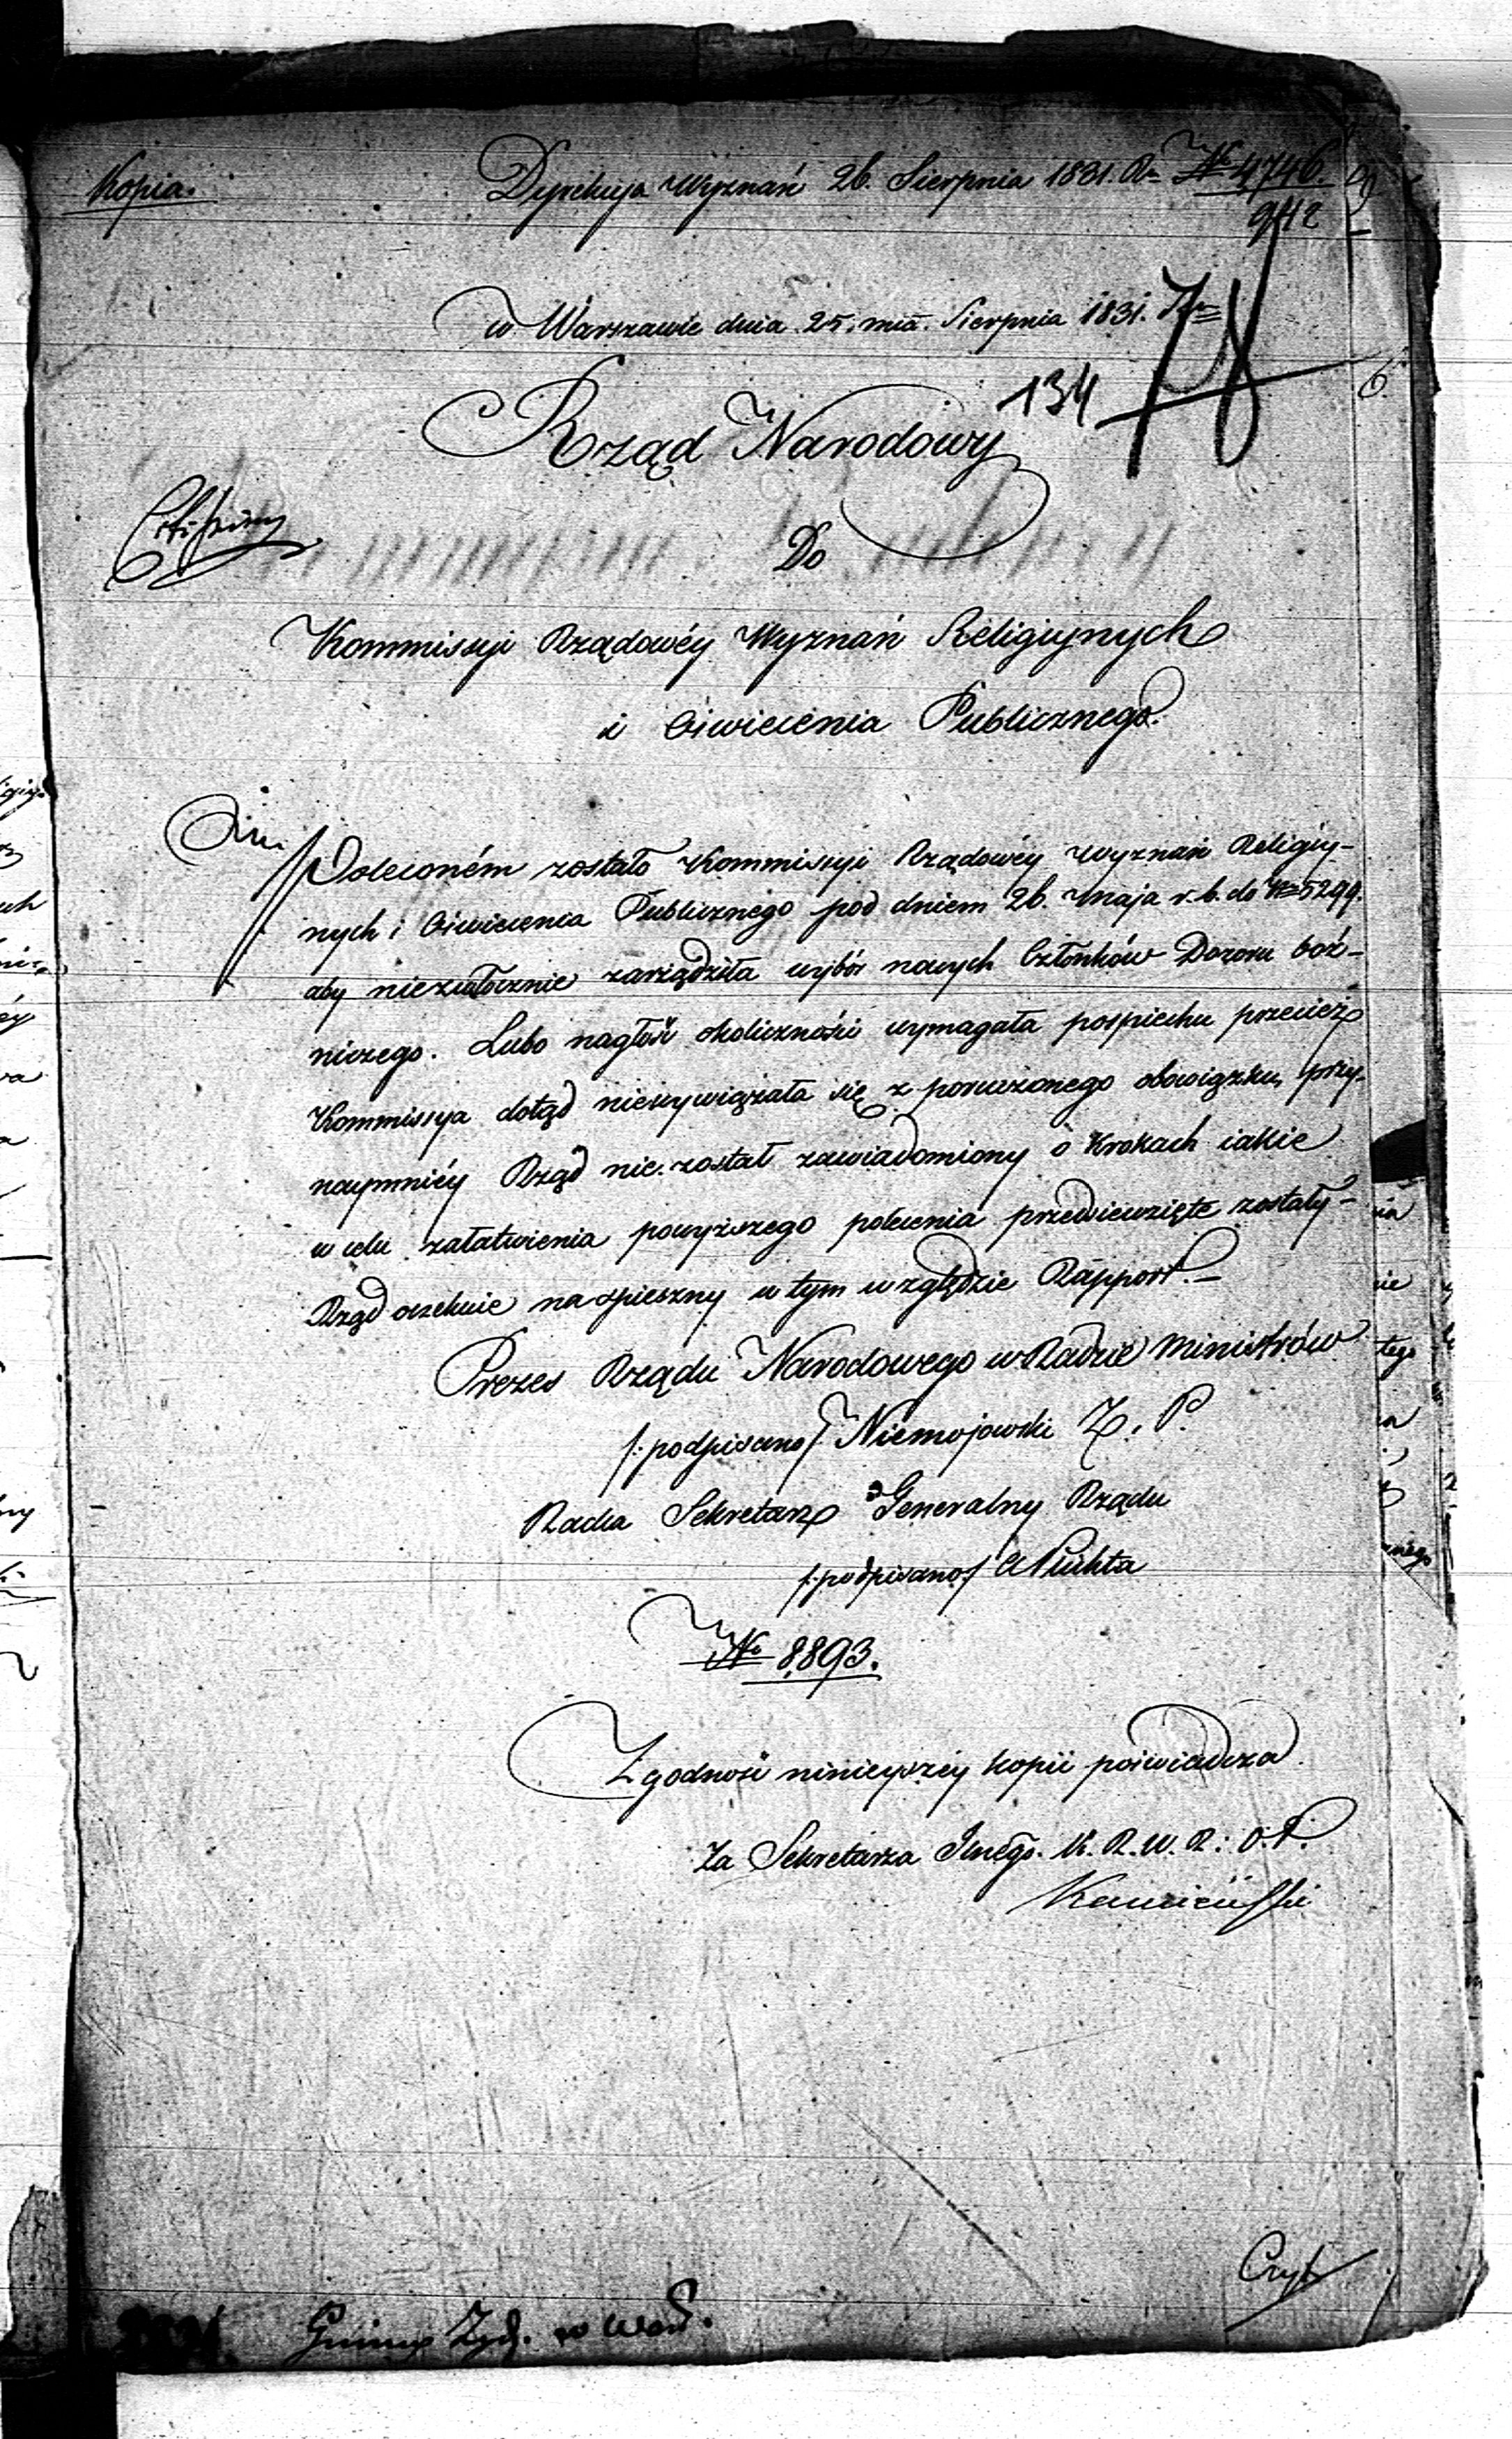 Kopia.
Dyrekcya Wyznań 26. Sierpnia 1831. R. № 4746.
942
w Warszawie dnia 25. mia. Sierpnia 1831. R.
78
134
6.
Rząd Narodowy
Do
Kommissyi Rządowéy Wyznań Religiynych
i Oświecenia Publicznego.
Poleconém zostało Kommissyi Rządowéy Wyznań Religiy-
nych i Oświecenia Publicznego pod dniem 26. Maja r. b. do № 5299.
aby niezwłocznie zarządziła wybór nowych Członków Dozoru boż-
niczego. Lubo nagłość okoliczności wymagała pospiechu przecież
Kommissya dotąd niewywiązała się z poruczonego obowiązku, przy-
naymniéy Rząd nie został zawiadomiony o Krokach iakie
w celu załatwienia powyższego polecenia przedsiewzięte zostały –
Rząd oczekuie na spieszny w tym względzie Rapport. –
Prezes Rządu Narodowego w Radzie Ministrów
/: podpisano / Niemojowski Z. P.
Radca Sekretarz Generalny Rządu
/: podpisano / A Plichta
№ 8893.
Zgodność ninieyszéy kopii poświadcza
Za Sekretarza Jnego. K. R. W. R: O. P.
Kamieński
Gminy Żyd. w War.